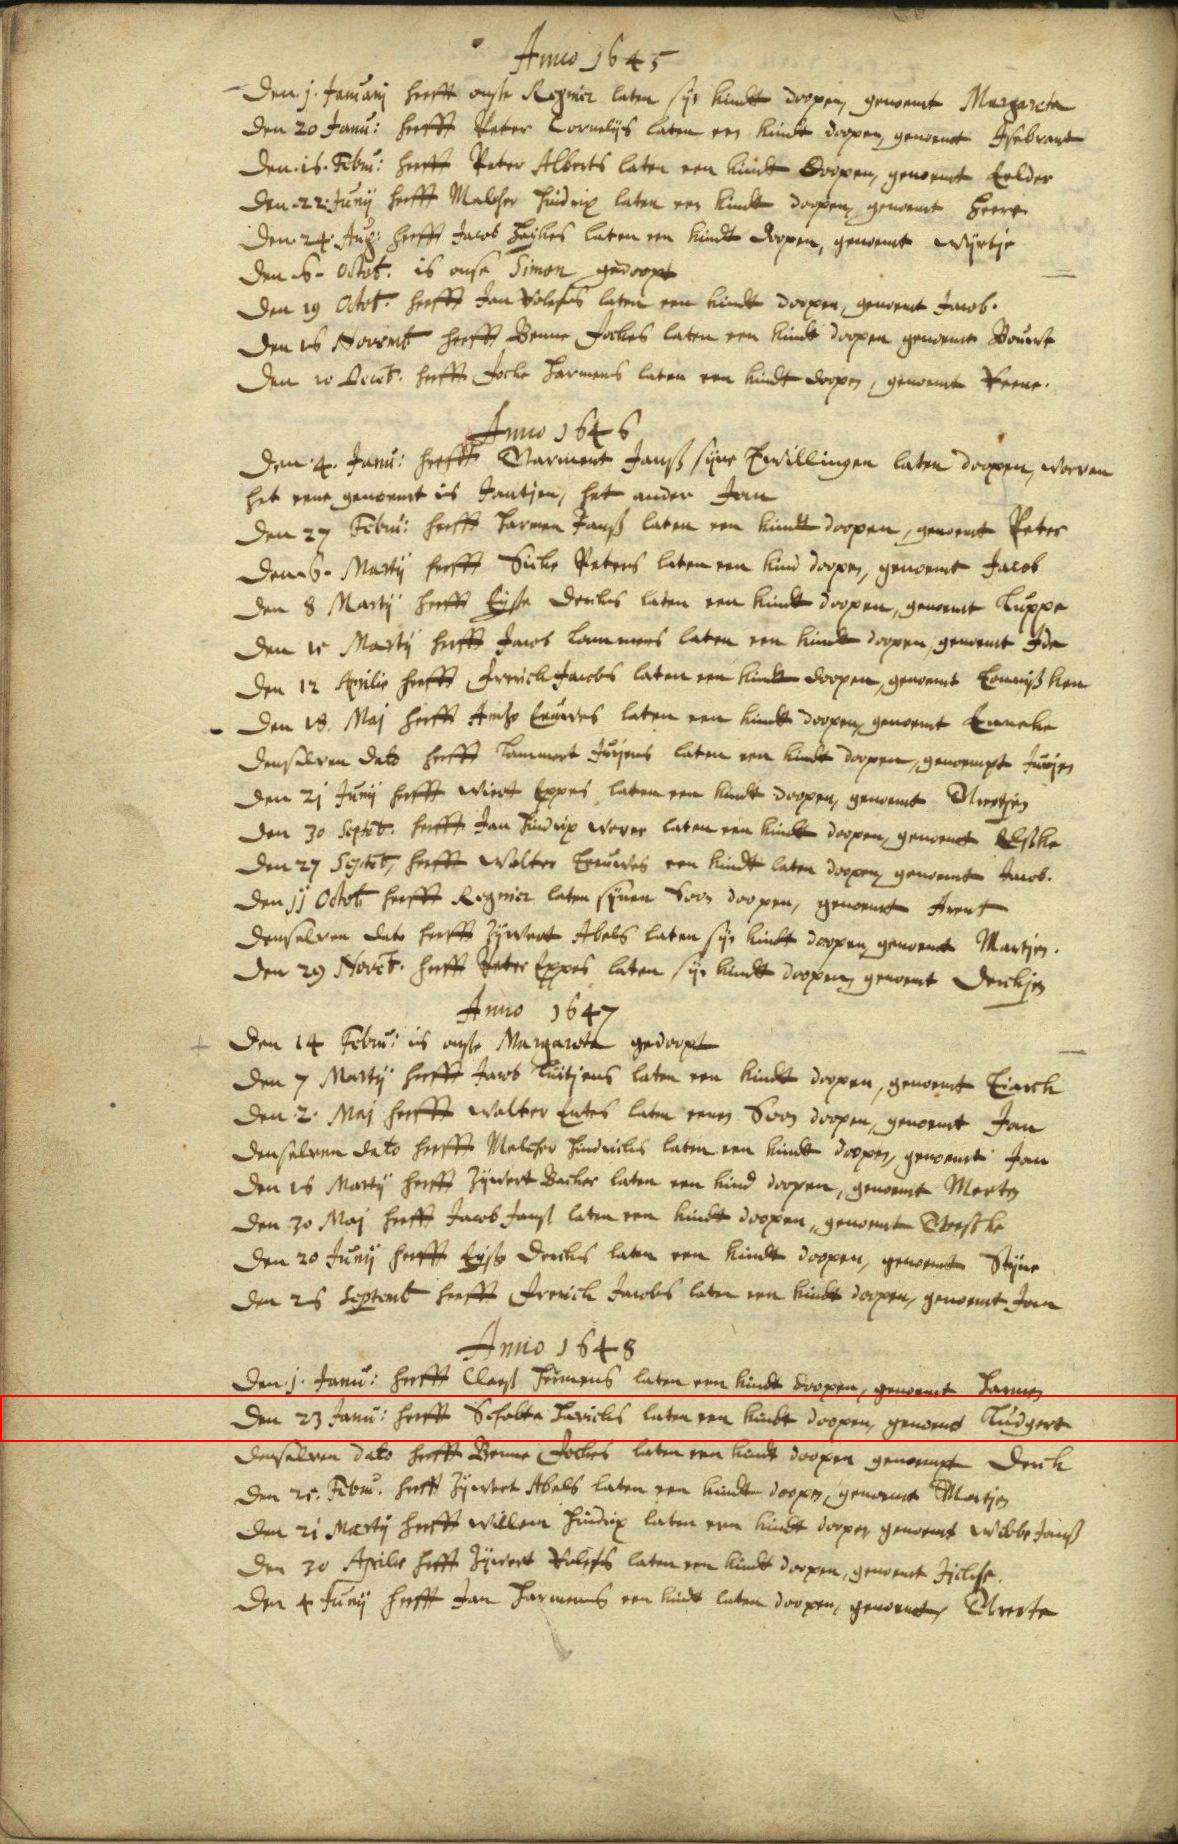 Anno 1645
Den j. Januarij heefft onse Regnier laten sijn kindt doopen, genoemt Margareta
Den 20 Janu: heefft Peter Cornelijs laten een kindt doopen, genoemt Isebrant
Den 16. Febru: heefft Peter Alberts laten een kindt doopen, genoemt Eelder
Den 22 Junij hefft Malcher Hindrix laten een kindt doopen, genoemt Heere
Den 24 Aug: hefft Jacob Heijkes laten een kindt doopen, genoemt Wijrtje
Den 6. Octob. is onse Simon gedoopt
Den 19 Octob. hefft Jan Rolefs laten een kindt doopen, genoemt Jacob.
Den 16 Novemb hefft Benne Fockes laten een kindt doopen genoemt
Den 10 Decemb. hefft Focke Harmens laten een kindt doopen, genoemt
Anno 1646
Den 4. Janu: heefft Jansß sijne Twillingen laten doopen, worvan
het eene genoemt is Jantjen, het ander Jan
Den 27 Febru: hefft Harmen Janß laten een kindt doopen, genoemt Peter
Den 6. Martij hefft Sicke Peters laten een kind doopen, genoemt Jacob
Den 8 Martij hefft Eijsse Derckes laten een kindt doopen, genoemt Luppe
Den 15 Martij hefft Jacob Lammers laten een kindt doopen, genoemt Ide
Den 12 Aprilis hefft Frerick Jacobs laten een kindt doopen, genoemt
Den 18. Maj hefft laten een kindt doopen, genoemt Enneke
Denselven dato hefft Lammert Jurjens laten een kindt doopen, genoempt Jurjen
Den 21 Junij hefft Wiert Eppes laten een kindt doopen, genoemt
Den 30 Septeb. hefft Jan Hindrix Wever laten een kindt doopen, genoemt
Den 27 Septeb, hefft Wolter Leeuwes een kindt laten doopen, genoemt Jacob.
Den 11 Octob hefft Regnier laten sijnen Soon doopen, genoemt Arent
Denselven dato hefft Zijwert Abels laten sijn kindt doopen, genoemt Martjen.
Den 29 Noveb. hefft Peter Eppes laten sijn kindt doopen, genoemt Derckjen
Anno 1647
Den 14 Febru: is onse Margareta gedoopt
Den 7 Martij hefft Jacob Luitjens laten een kindt doopen, genoemt
Den 2. Maj hefft Wolter Entes laten eenen Soon doopen, genoemt Jan
Denselven dato hefft Melcher Hindricks laten een kindt doopen, genoemt Jan
Den 16 Martij hefft Zijwert Backer laten een kind doopen, genoemt Merten
Den 30 Maj hefft Jacob Janß laten een kindt doopen, genoemt
Den 20 Junij hefft Eijsse Derckes laten een kindt doopen, genoemt Stijne
Den 26 Septemb hefft Frerick Jacobs laten een kindt doopen, genoemt Jan
Anno 1648
Den j. Janu: hefft Claesß Hermens laten een kindt doopen, genoemt Harmen
Den 23 Janu: hefft Scholte Havicks laten een kindt doopen, genoemt Ludgert
Denselven dato hefft Benne Fockes laten een kindt doopen genoempt Derck
Den 25. Febru. hefft Zijwert Abels laten een kindt doopen, genoemt Martjen
Den 21 Martij hefft Willem Hindrix laten een kindt doopen genoemt Wibbe Janß
Den 30 Aprilis hefft Zijwert Rolefs laten een kindt doopen, genoemt
Den 4 Junij hefft Jan Harmens een kindt laten doopen, genoemt,